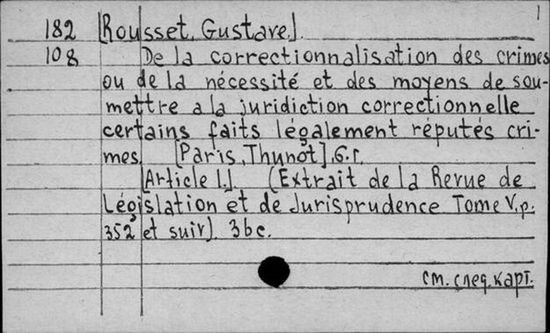 1
182 [Rousset, Gustave.]
108 De la correctionnalisation des crimes
ou de la nécessité et des moyens de sou-
mettre a la juridiction correctionnelle
certains faits légalement réputés cri-
mes. [Paris, Thunot], б.г.
[Article I.] (Extrait de la Revue de
Législation et de Jurisprudence Tome V, p.
352 et suiv). 3 вс.
см. след. карт.